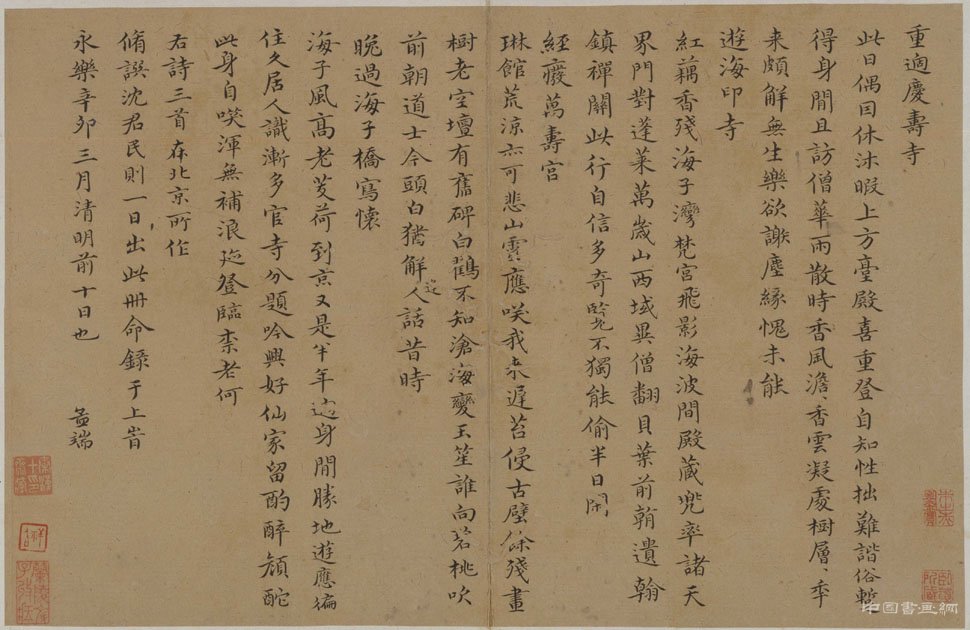 重過慶壽寺
此日偶因休沐暇上方臺殿喜重登自知性拙難諧俗暫
得身閒且訪僧華雨散時香風澹〻香雲凝處樹層〻年
来頗解無生樂欲謝塵緣愧未能
遊海印寺
紅藕香殘海子灣梵宮飛影海波間殿藏兜率諸天
界門對蓬萊萬歲山西域異僧翻貝葉前朝遺翰
鎮禪關此行自信多奇覽不獨能偷半日閑
經廢萬壽宮
琳館荒涼亦可悲山靈應咲我來遲苔侵古壁餘殘畫
樹老空壇有舊碑白鶴不知滄海變玉笙誰向碧桃吹
前朝道士今頭白猶解人話昔時
逢
晚過海子橋寫懷
海子風高老芰荷到京又是半年過身閒勝地遊應徧
住久居人識漸多官寺分題吟興好仙家留酌醉顏酡
此身自咲渾無補浪迹登臨柰老何
右詩三首在北京所作
脩譔沈君民則一日出此冊命錄于上旹
永樂辛卯三月清明前十日也
孟端
中国書画網